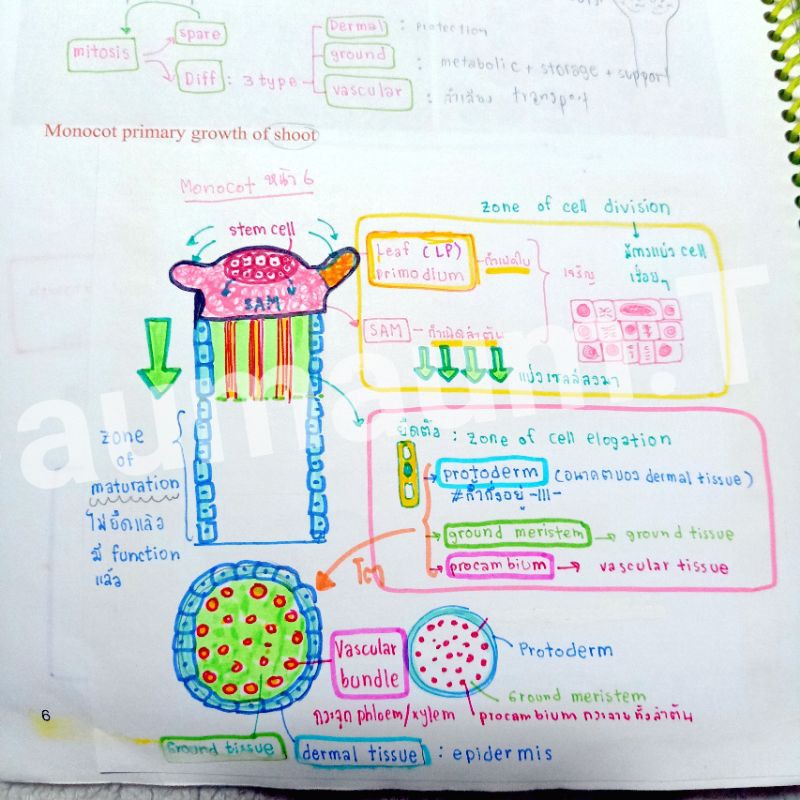 mitosis
spare
Diff : 3 type
Dermal : protection
ground : metabolic + storage + support
vascular : ลำเลียง transport
Monocot primary growth of shoot
Monocot หน้า 6
zone of cell division
มีการแบ่ง cell
เรื่อยๆ
stem cell
SAM
Leaf (LP)
primodium
กำเนิดใบ
เจริญ
SAM – กำเนิดลำต้น
แบ่งเซลล์ลงมา
ยืดตัว : zone of cell elogation
protoderm (อนาคตของ dermal tissue)
#กำกึ่งอยู่ -|||-
ground meristem → ground tissue
procambium → vascular tissue
zone
of
maturation
ไม่ยืดแล้ว
มี function
แล้ว
Vascular
bundle
Protoderm
Ground meristem
กระจุก phloem/xylem
procambium กระจายทั้งลำต้น
Ground tissue
dermal tissue : epidermis
6
aumaum.T